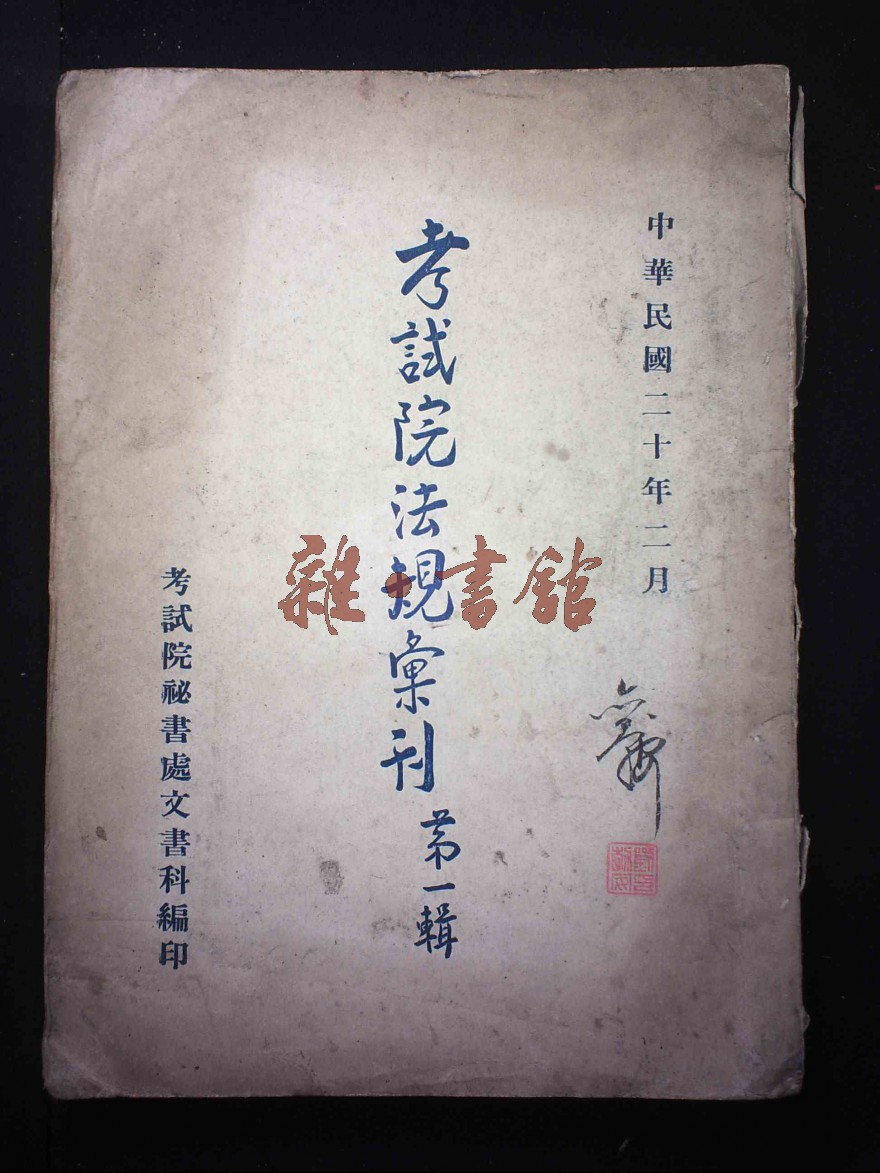 中華民國二十年二月
考試院法規彙刊 第一輯
考試院祕書處文書科編印
雜書館